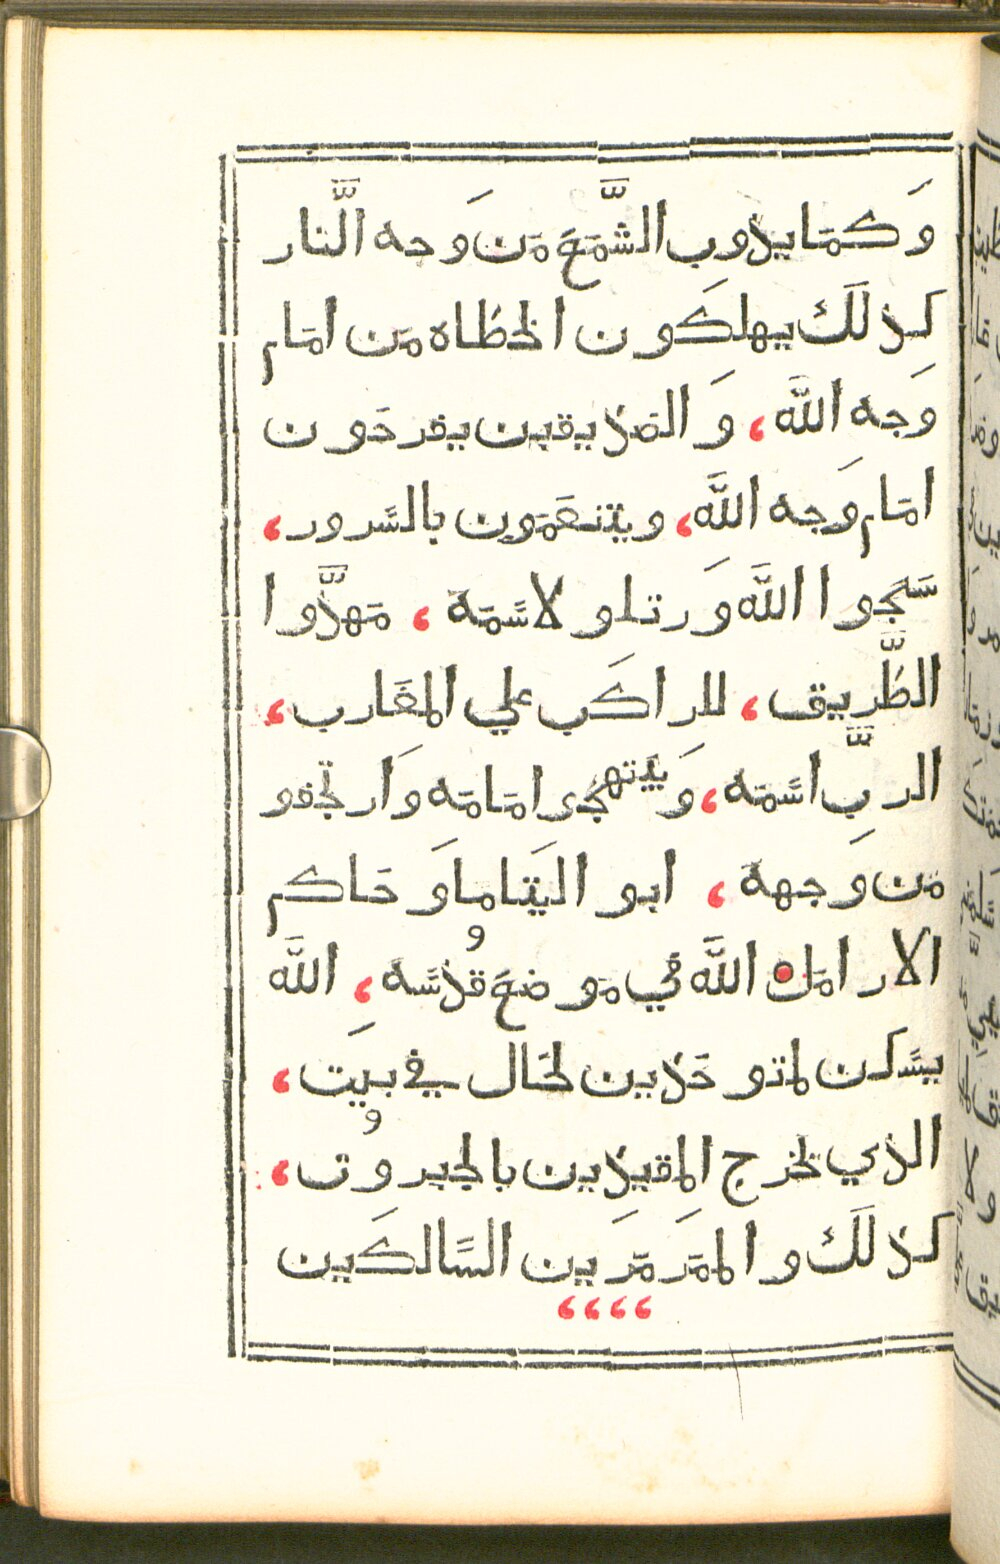 وَكمَا يذوب الشَّمَعَ مَن وَجه النَّار
كذلَكَ يهلكَون الخطاه مَن امَام
وَجه اللَّه، وَ الصَديقين يفرحَون
امَام وَجه اللَّه، ويتنعَمَون بالسَرور،
سَبحوا اللَّه وَرتلو لاسَمَه، مَهدَّوا
الطَّريق، للراكَب علي المغَارب،
الربَّ اسَمَه، وَيبتهجوا امَامَه وَارتجفو
مَن وَجهه، ابو اليتَاما وَحَاكم
الارامَل اللَّه في مَوضعَ قدسَه، اللَّه
يسَكن لمتوحَدين لحَال في بيت،
الذي يخرج المقيدين بالجبروت،
كذلَكَ والممَرمَرين السَالكَين